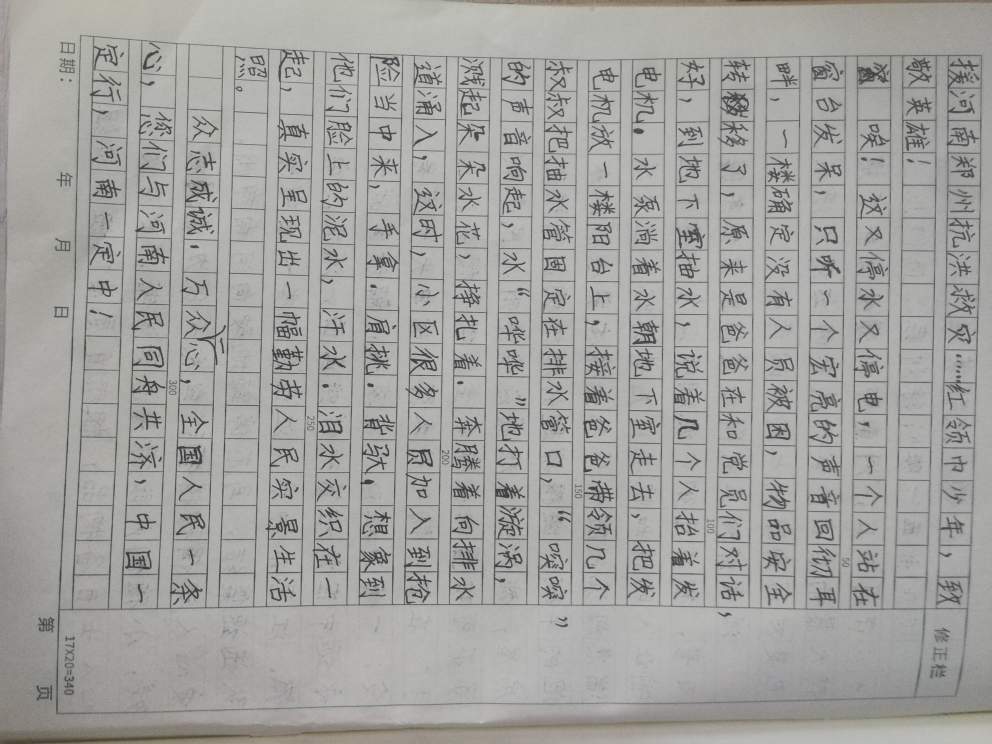 援河南郑州抗洪救灾……红领巾少年，致
敬英雄！
唉！这又停水又停电，一个人站在
窗台发呆，只听一个宏亮的声音回彻耳
畔，一楼确定没有人员被困，物品安全
转移了，原来是爸爸在和党员们对话，
好，到地下室抽水，说着几个人抬着发
电机。水泵淌着水朝地下室走去，把发
电机放一楼阳台上，接着爸爸带领几个
叔叔把抽水管固定在排水管口，“嗡嗡”
的声音响起，水“哗哗”地打着漩涡，
溅起朵朵水花，挣扎着．奔腾着向排水
道涌入，这时，小区很多人员加入到抢
险当中来，手拿．肩挑．背驮，想象到
他们脸上的泥水，汗水．泪水交织在一
起，真实呈现出一幅勤劳人民实景生活
照。
众志成诚，万众一心，全国人民一条
心，您们与河南人民同舟共济，中国一
定行，河南一定中！
修正栏
50
100
150
200
250
300
17X20=340
日期： 年 月 日
第 页